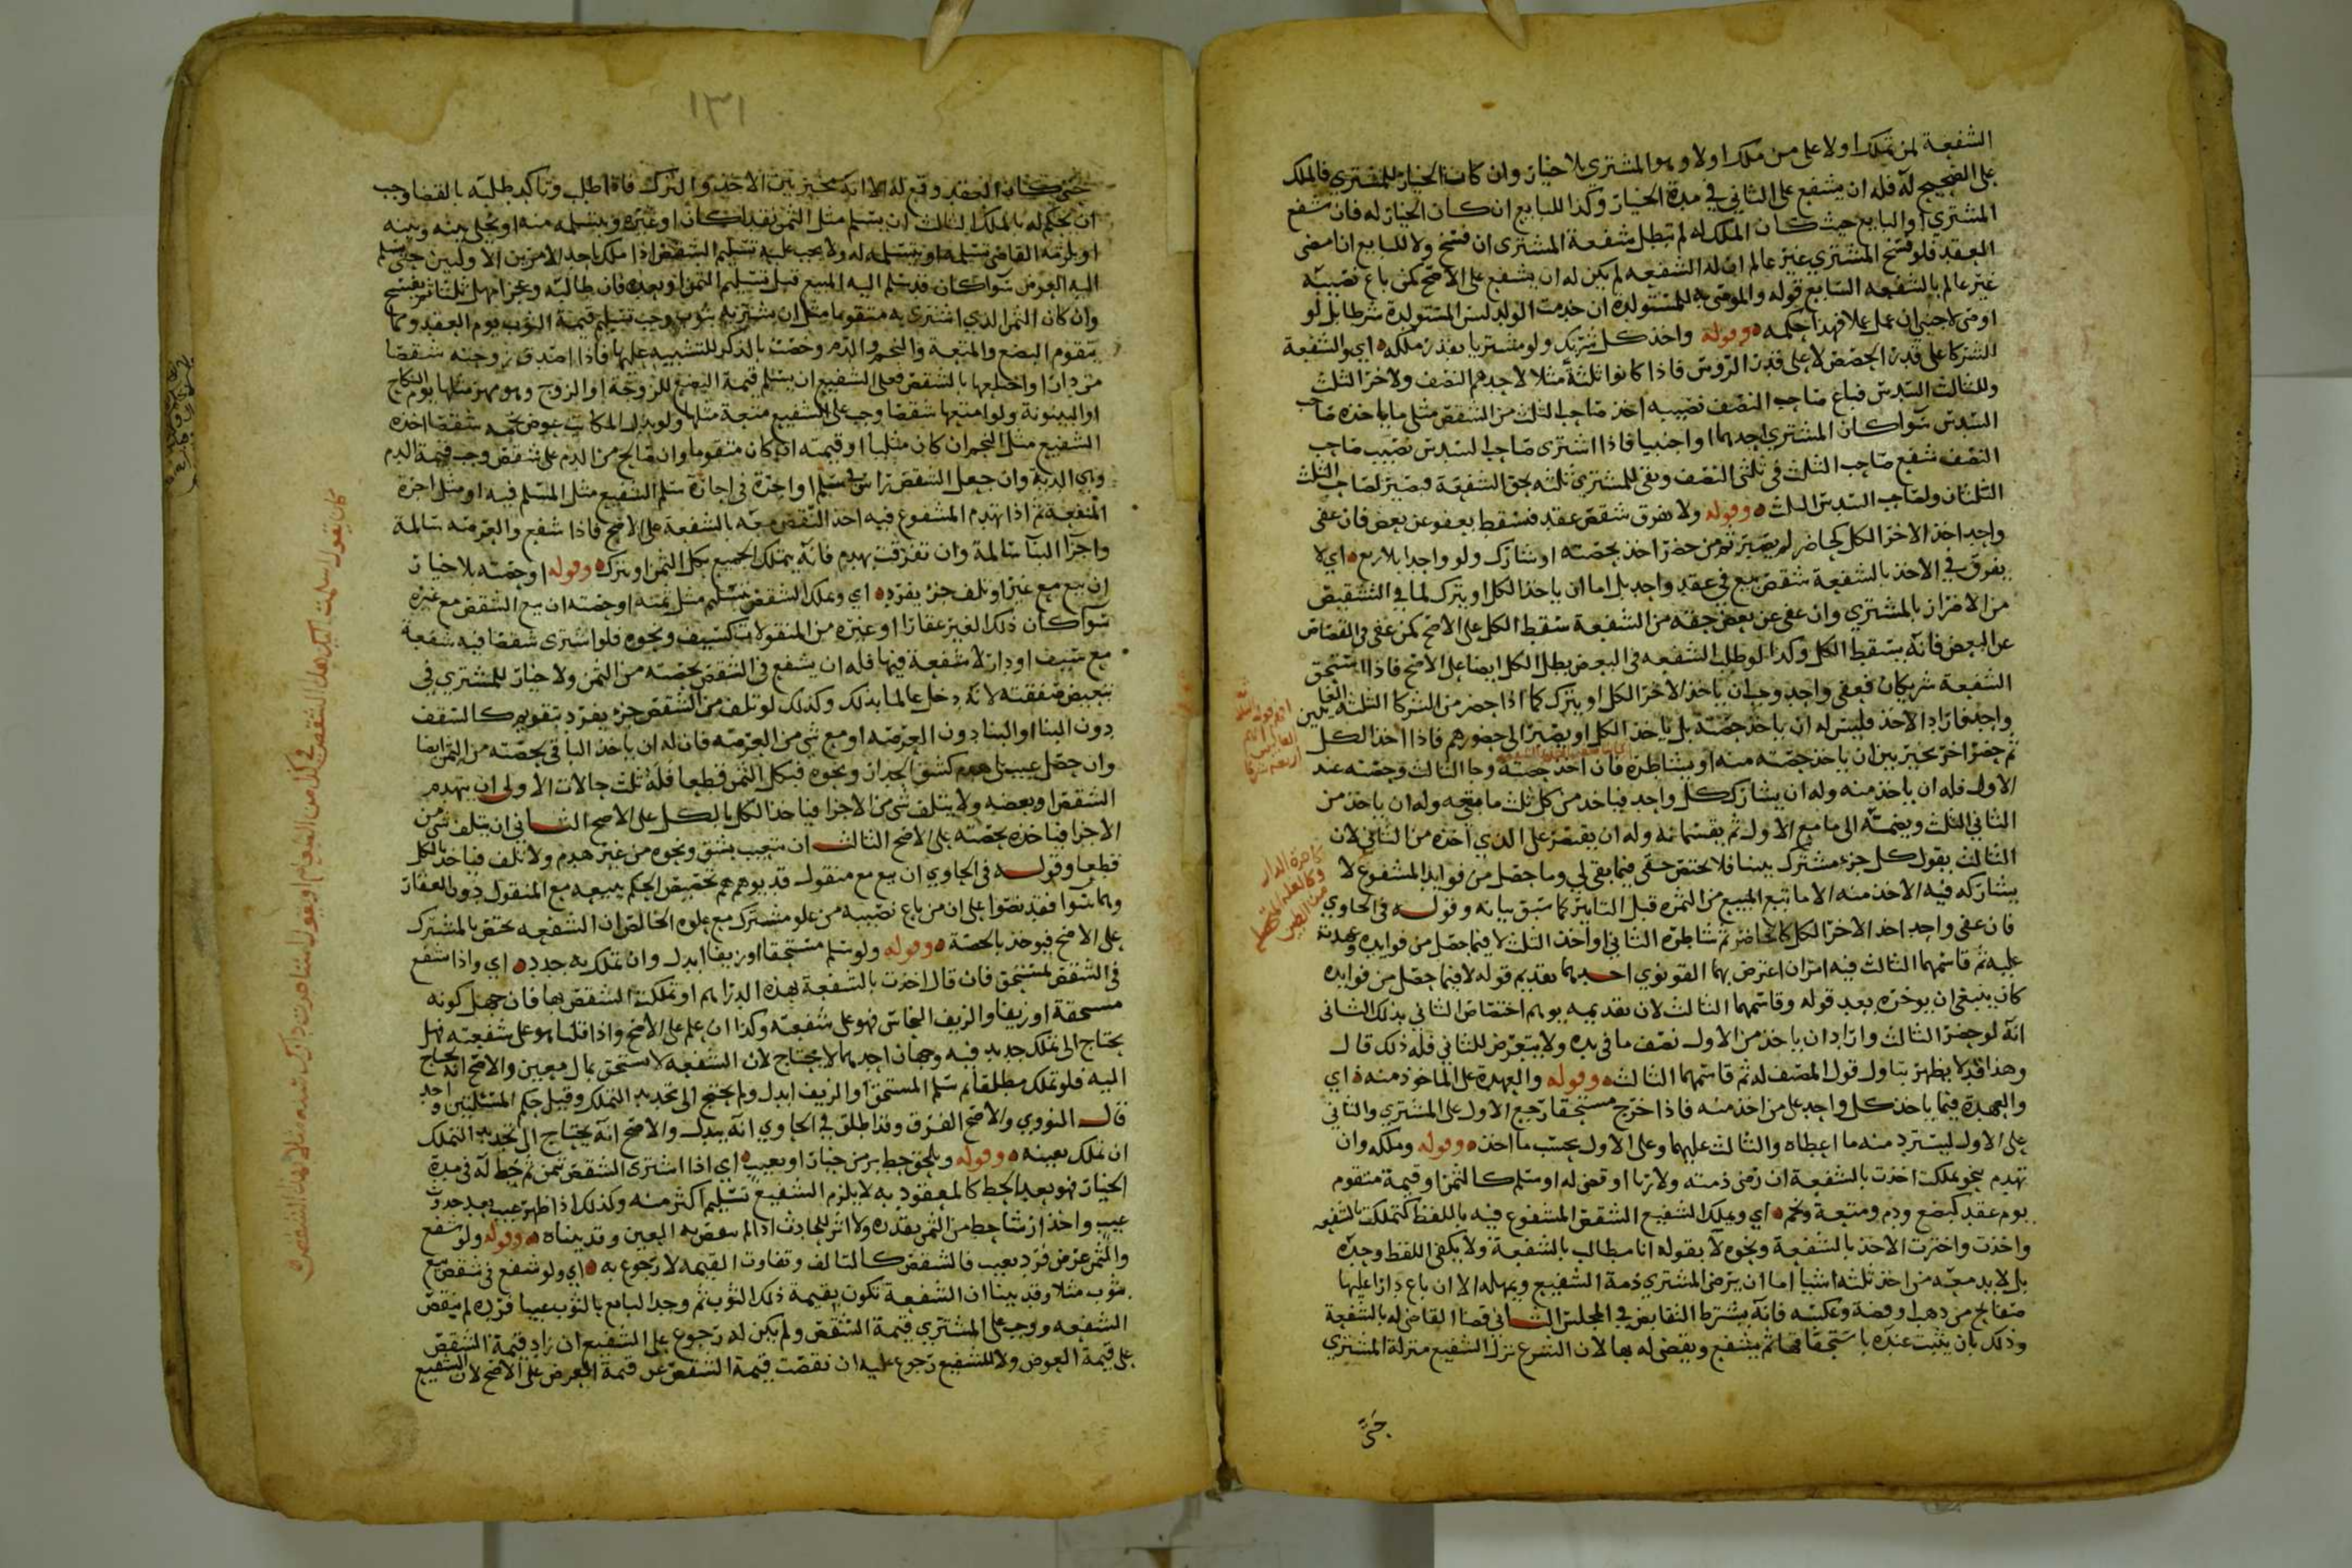 الشفعة لمن تملك اولا على من ملك اولا وهو المشتري بلا خيار وان كان الخيار للمشتري فالملك
على الصحيح له فله ان يشفع على الثاني في مدة الخيار وكذا للبايع ان كان الخيار له فان شفع
المشتري او البايع حيث كان الملك له لم تبطل شفعة المشتري ان فسخ ولا للبايع ان امضى
العقد فلو فسخ المشتري غير عالم ان له الشفعه لم يكن له ان يشفع على الاصح كمن باع نصيبه
غير عالم بالشفعه السابع قوله والموصى به للمستولدة ان خدمت الولد ليس المستولدة شرطا بل لو
اوصى لاجنبي ان عمل عملا فهذا حكمه وقوله واخذ كل شريك ولو مشتريا بقدر ملكه اي والشفعة
للشركا على قدر الحصص لا على قدر الروس فاذا كانوا ثلثة مثلا لاحدهم النصف ولاخر الثلث
وللثالث السدس فباع صاحب النصف نصيبه اخذ صاحب الثلث من الشقص مثلي ما ياخذه صاحب
السدس سوا كان المشتري احدهما او اجنبيا فاذا اشترى صاحب السدس نصيب صاحب
النصف شفع صاحب الثلث في ثلثي النصف وبقي للمشتري ثلثه بحق الشفعة فيصير لصاحب الثلث
الثلثان ولصاحب السدس الثلث وقوله ولا يفرق شقص عقد فسقط بعفو عن بعض فان عفى
واحد اخذ الاخر الكل كحاضر لم يصبر ثم من حضر اخذ بحصته او شارك ولو واحدا بلا ربع اي لا
يفرق في الاخذ بالشفعة شقص بيع في عقد واحد بل اما ان ياخذ الكل او يترك لما في التشقيص
من الاضرار بالمشتري وان عفى عن بعض حقه من الشفعة سقط الكل على الاصح كمن عفى في القصاص
عن البعض فانه يسقط الكل وكذا لو طلب الشفعه في البعض بطل الكل ايضا على الاصح فاذا استحق
الشفعة شريكان فعفى واحد وجب ان ياخذ الاخر الكل او يترك كما اذا حضر من الشركا الثلثة الغايبين
واحد فاراد الاخذ فليس له ان ياخذ حصته بل ياخذ الكل او يصبر الى حضورهم فاذا اخذ الكل
ثم حضر اخر تخير بين ان ياخذ حصته منه او يشاطره فان اخذ حصته وجا الثالث وحصته عند
الاول فله ان ياخذ منه وله ان يشارك كل واحد فياخذ من كل ثلث ما معه وله ان ياخذ من
الثاني الثلث ويضمه الى ما مع الاول ثم يقسمانه وله ان يقتصر على الذي اخذه من الثاني لان
الثالث يقول كل جزء مشترك بيننا فلا تختص حقي فيما بقي لي وما حصل من فوايد المشفوع لا
يشاركه فيه الاخذ منه الا ما تبع المبيع من الثمره قبل التابير كما سبق بيانه وقوله في الحاوي
فان عفى واحد اخذ الاخر الكل كالحاضر ثم شاطره الثاني او اخذ الثلث لا فيما حصل من فوايده وعهدته
عليه ثم قاسمهما الثالث فيه امران اعترض بهما القونوي احدهما تقديم قوله لا فيما حصل من فوايده
كان ينبغي ان يوخره بعد قوله وقاسمهما الثالث لان تقديمه يوهم اختصاص الثاني بذلك الثاني
انه لو حضر الثالث واراد ان ياخذ من الاول نصف ما في يده ولا يتعرض للثاني فله ذلك قال
وهذا قد لا يظهر تناول قول المصنف له ثم قاسمهما الثالث وقوله والعهدة على الماخوذ منه اي
والعهدة فيما ياخذ كل واحد على من اخذ منه فاذا خرج مستحقا رجع الاول على المشتري والثاني
على الاول ليسترد منه ما اعطاه والثالث عليهما وعلى الاول بحسب ما اخذ وقوله وملكه وان
تهدم بنحو تملكت اخذت بالشفعة ان رضي ذمته ولا ربا او قضي له او سلم كالثمن او قيمة متقوم
يوم عقد كبضع ودم ومتعة ونجم اي ويملك الشفيع الشقص المشفوع فيه باللفظ كتملكت بالشفعه
واخذت واخترت الاخذ بالشفعة ونحوه لا بقوله انا مطالب بالشفعة ولا يكفي اللفظ وحده
بل لا بد معه من احد ثلثه اشيا اما ان يرضى المشتري ذمة الشفيع ويمهله الا ان باع دارا عليها
صفايح من ذهب او فضة وعكسه فانه يشترط التقابض في المجلس الثاني قضا القاضي له بالشفعة
وذلك بان يثبت عنده باستحقاقها ثم يشفع ويقضى له بها لان الشرع نزل الشفيع منزلة المشتري
حتى
١٣١
حتى كان العقد وقع له الا انه مخير بين الاخذ والترك فاذا طلب وتاكد طلبه بالقضا وجب
ان يحكم له بالملك الثالث ان يسلم مثل الثمن نقدا كان او غيره ويتسلمه منه او يخلي بينه وبينه
او يلزمه القاضي تسلمه او يتسلمه له ولا يجب عليه تسليم الشقص اذا ملك باحد الامرين الاولين حتى يسلم
اليه العوض سوا كان قد سلم اليه المبيع قبل تسليم الثمن او بعده فان طالبه وعجز امهل ثلثا ثم يفسخ
وان كان الثمن الذي اشترى به متقوما مثل ان يشتريه بثوب وجب تسليم قيمة الثوب يوم العقد ومما
يتقوم البضع والمتعة والنجم والدم وخصت بالذكر للتنبيه عليها فاذا اصدق زوجته شقصا
من دار او اختلعها بالشقص فعلى الشفيع ان يسلم قيمة البضع للزوجة او الزوج وهو مهر مثلها يوم النكاح
او البينونة ولو امتعها شقصا وجب على الشفيع متعة مثلها ولو بذل المكاتب عوض نجمه شقصا اخذه
الشفيع مثل النجم ان كان مثليا او قيمته ان كان متقوما وان صالح من الدم على شقص وجب قيمة الدم
وهي الدية وان جعل الشقص راس سلم او اجرة في اجارة سلم الشفيع مثل المسلم فيه او مثل اجرة
المنفعة ثم اذا تهدم المشفوع فيه اخذ النقض معه بالشفعة على الاصح فاذا شفع والعرصه سالمة
واجزا البنا سالمة وان تفرقت بهدم فانه يتملك الجميع بكل الثمن او يترك وقوله او حصته بلا خيار
ان بيع مع غير او تلف جزء يفرد اي ويملك الشقص بتسليم مثل ثمنه او حصته ان بيع الشقص مع غيره
سوا كان ذلك الغير عقارا او غيره من المنقولات كسيف ونحوه فلو اشترى شقصا فيه شفعة
مع سيف او دار لا شفعة فيها فله ان يشفع في الشقص بحصته من الثمن ولا خيار للمشتري في
تبعيض صفقته لانه دخل عالما بذلك وكذلك لو تلف من الشقص جزء يفرد بتقويم كالسقف
دون البنا او البنا دون العرصه او مع شي من العرصه فان له ان ياخذ الباقي بحصته من الثمن ايضا
وان حصل عيب بلا هدم كشق الجدار ونحوه فبكل الثمن قطعا فله ثلث حالات الاولى ان يتهدم
الشقص او بعضه ولا يتلف شي من الاجزا فياخذ الكل بالكل على الاصح الثاني ان يتلف شي من
الاجزا فياخذه بحصته على الاصح الثالث ان يتعيب بشق ونحوه من غير هدم ولا تلف فياخذ بالكل
قطعا وقوله في الحاوي ان بيع مع منقول قد يوهم تخصيص الحكم ببيعه مع المنقول دون العقار
وهما سوا فقد نصوا على ان من باع نصيبه من علو مشترك مع علوه الخالص ان الشفعه تختص بالمشترك
على الاصح فيوخذ بالحصة وقوله ولو سلم مستحقا او زيفا ابدل وان تملك به جدد اي واذا شفع
في الشقص لمستحق فان قال اخذت بالشفعة بهذه الدراهم او تملكت الشقص بها فان جهل كونه
مستحقة او زيفا والزيف النحاس فهو على شفعته وكذا ان علم على الاصح واذا قلنا هو على شفعته فهل
يحتاج الى تملك جديد فيه وجهان احدهما لا يحتاج لان الشفعه لا تستحق بمال معين والاصح انه يحتاج
اليه فلو تملك مطلقا ثم سلم المستحق او الزيف ابدل ولم يحتج الى تجديد التملك وقيل حكم المسئلتين واحد
قال النووي والاصح الفرق وقد اطلق في الحاوي انه يبدل والاصح انه يحتاج الى تجديد التملك
ان تملك بعينه وقوله ويلحق حط بزمن خيار او بعيب اي اذا اشترى الشقص بثمن ثم حط له في مدة
الخيار فهو بعد الحط كالمعقود به لا يلزم الشفيع تسليم اكثر منه وكذلك اذا ظهر عيب بعد حدوث
عيب واخذ ارشا حط من الثمن بقدره ولا اثر للحادث اذا لم ينقص به العين وقد بيناه وقوله ولو شفع
والثمن عرض فرد بعيب فالشقص كالتالف وتفاوت القيمه لا رجوع به اي ولو شفع في شقص بيع
بثوب مثلا وقد بينا ان الشفعة تكون بقيمة ذلك الثوب ثم وجد البايع بالثوب عيبا فرده لم ينقض
الشفعه ووجب على المشتري قيمة الشقص ولم يكن له رجوع على الشفيع ان زاد قيمة الشقص
على قيمة العوض ولا للشفيع رجوع عليه ان نقصت قيمة الشقص عن قيمة العرض على الاصح لان الشفيع